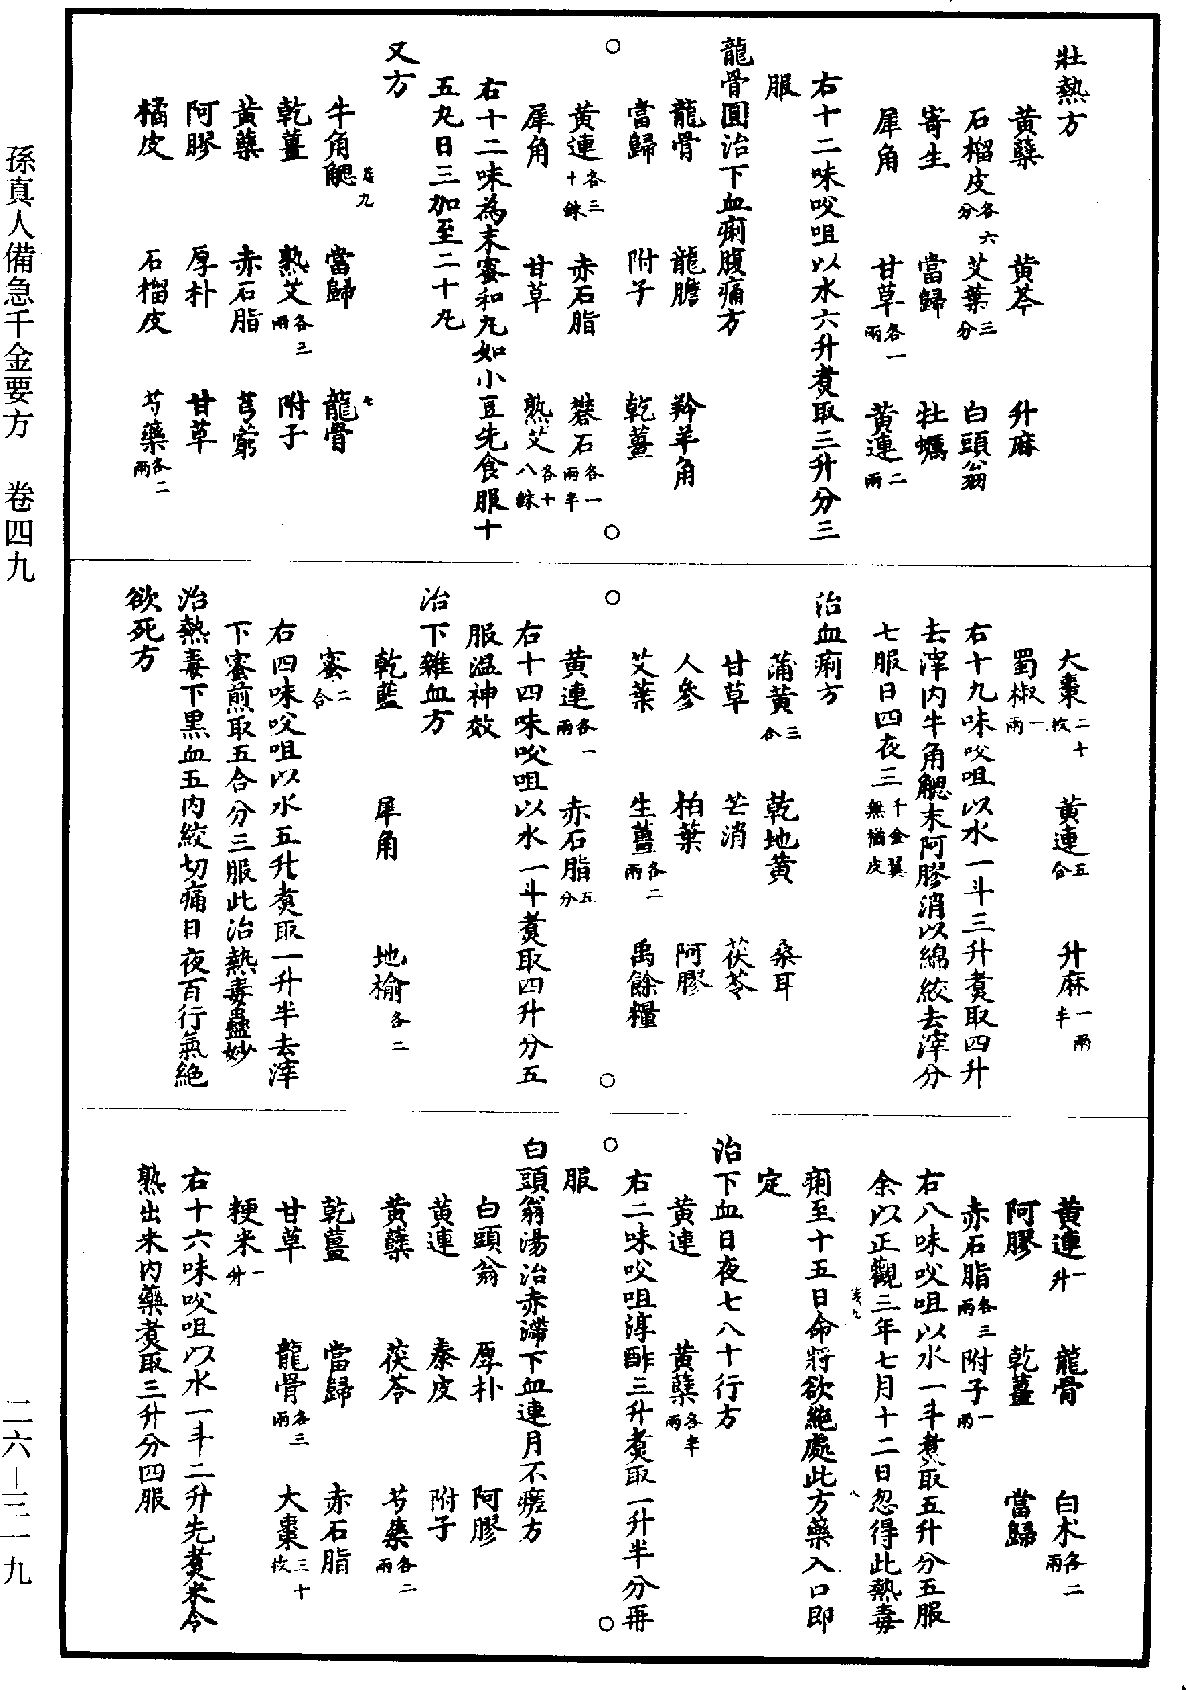 壯熱方
黃蘗 黃芩 升麻
石榴皮各六分 艾葉三分 白頭翁
寄生 當歸 牡蠣
犀角 甘草各一兩 黃連二兩
右十二味㕮咀以水六升煮取三升分三
服
龍骨圓治下血痢腹痛方
龍骨 龍膽 羚羊角
當歸 附子 乾薑
黃連各三十銖 赤石脂 礬石各一兩半
犀角 甘草 熟艾各十八銖
右十二味為末蜜和丸如小豆先食服十
五丸日三加至二十丸
又方
牛角䚡 當歸 龍骨
乾薑 熟艾各三兩 附子
黃蘗 赤石脂 芎藭
阿膠 厚朴 甘草
橘皮 石榴皮 芍藥各二兩
大棗二十枚 黃連五合 升麻一兩半
蜀椒一兩
右十九味㕮咀以水一斗三升煮取四升
去滓內牛角䚡末阿膠消以綿絞去滓分
七服日四夜三千金翼無橘皮
治血痢方
蒲黃三合 乾地黃 桑耳
甘草 芒消 茯苓
人參 柏葉 阿膠
艾葉 生薑各二兩 禹餘糧
黃連各一兩 赤石脂五分
右十四味㕮咀以水一斗煮取四升分五
服溫神效
治下雜血方
乾藍 犀角 地榆各二
蜜二合
右四味㕮咀以水五升煮取一升半去滓
下蜜煎取五合分三服此治熱毒蠱妙
治熱毒下黑血五內絞切痛日夜百行氣絕
欲死方
黃連一升 龍骨 白朮各二兩
阿膠 乾薑 當歸
赤石脂各三兩 附子一兩
右八味㕮咀以水一斗煮取五升分五服
余以正觀三年七月十二日忽得此熱毒
痢至十五日命將欲絕處此方藥入口即
定
治下血日夜七八十行方
黃連 黃蘗各半兩
右二味㕮咀淳酢三升煮取一升半分再
服
白頭翁湯治赤滯下血連月不瘥方
白頭翁 厚朴 阿膠
黃連 秦皮 附子
黃蘗 茯苓 芍藥各二兩
乾薑 當歸 赤石脂
甘草 龍骨各三兩 大棗三十枚
粳米一升
右十六味㕮咀以水一斗二升先煮米令
熟出米內藥煮取三升分四服
孫真人備急千金要方 卷四九
二六—三一九